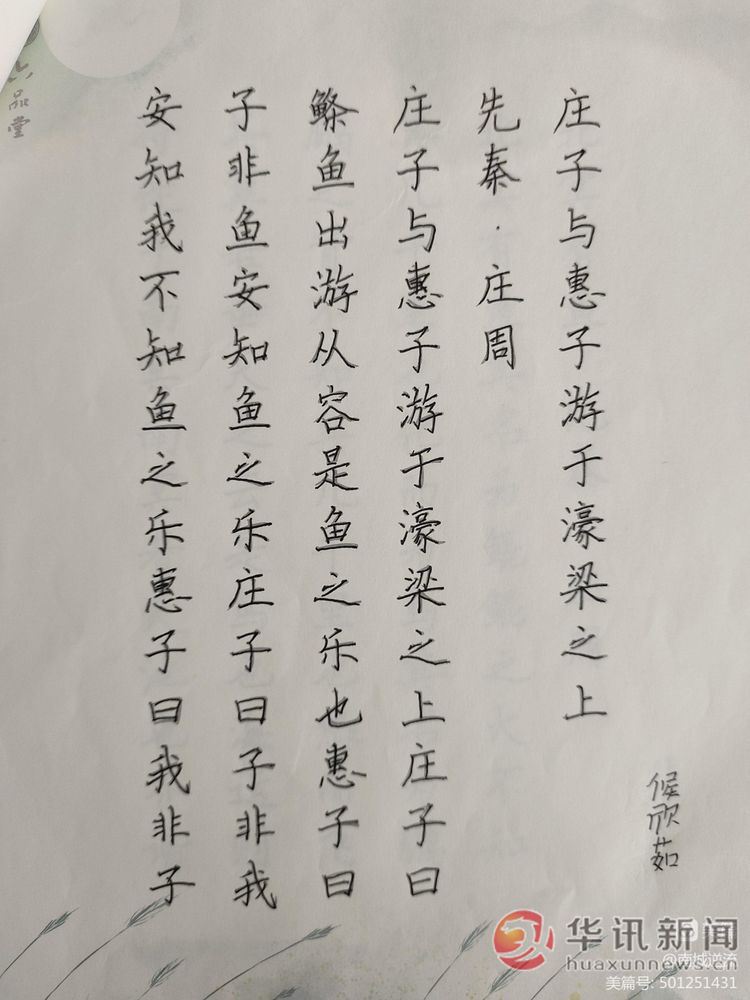 庄子与惠子游于濠梁之上
先秦·庄周
庄子与惠子游于濠梁之上庄子曰
鲦鱼出游从容是鱼之乐也惠子曰
子非鱼安知鱼之乐庄子曰子非我
安知我不知鱼之乐惠子曰我非子
候欣茹
六品堂
华讯新闻
huaxunnews.cn
@南城逆流
美篇号: 501251431